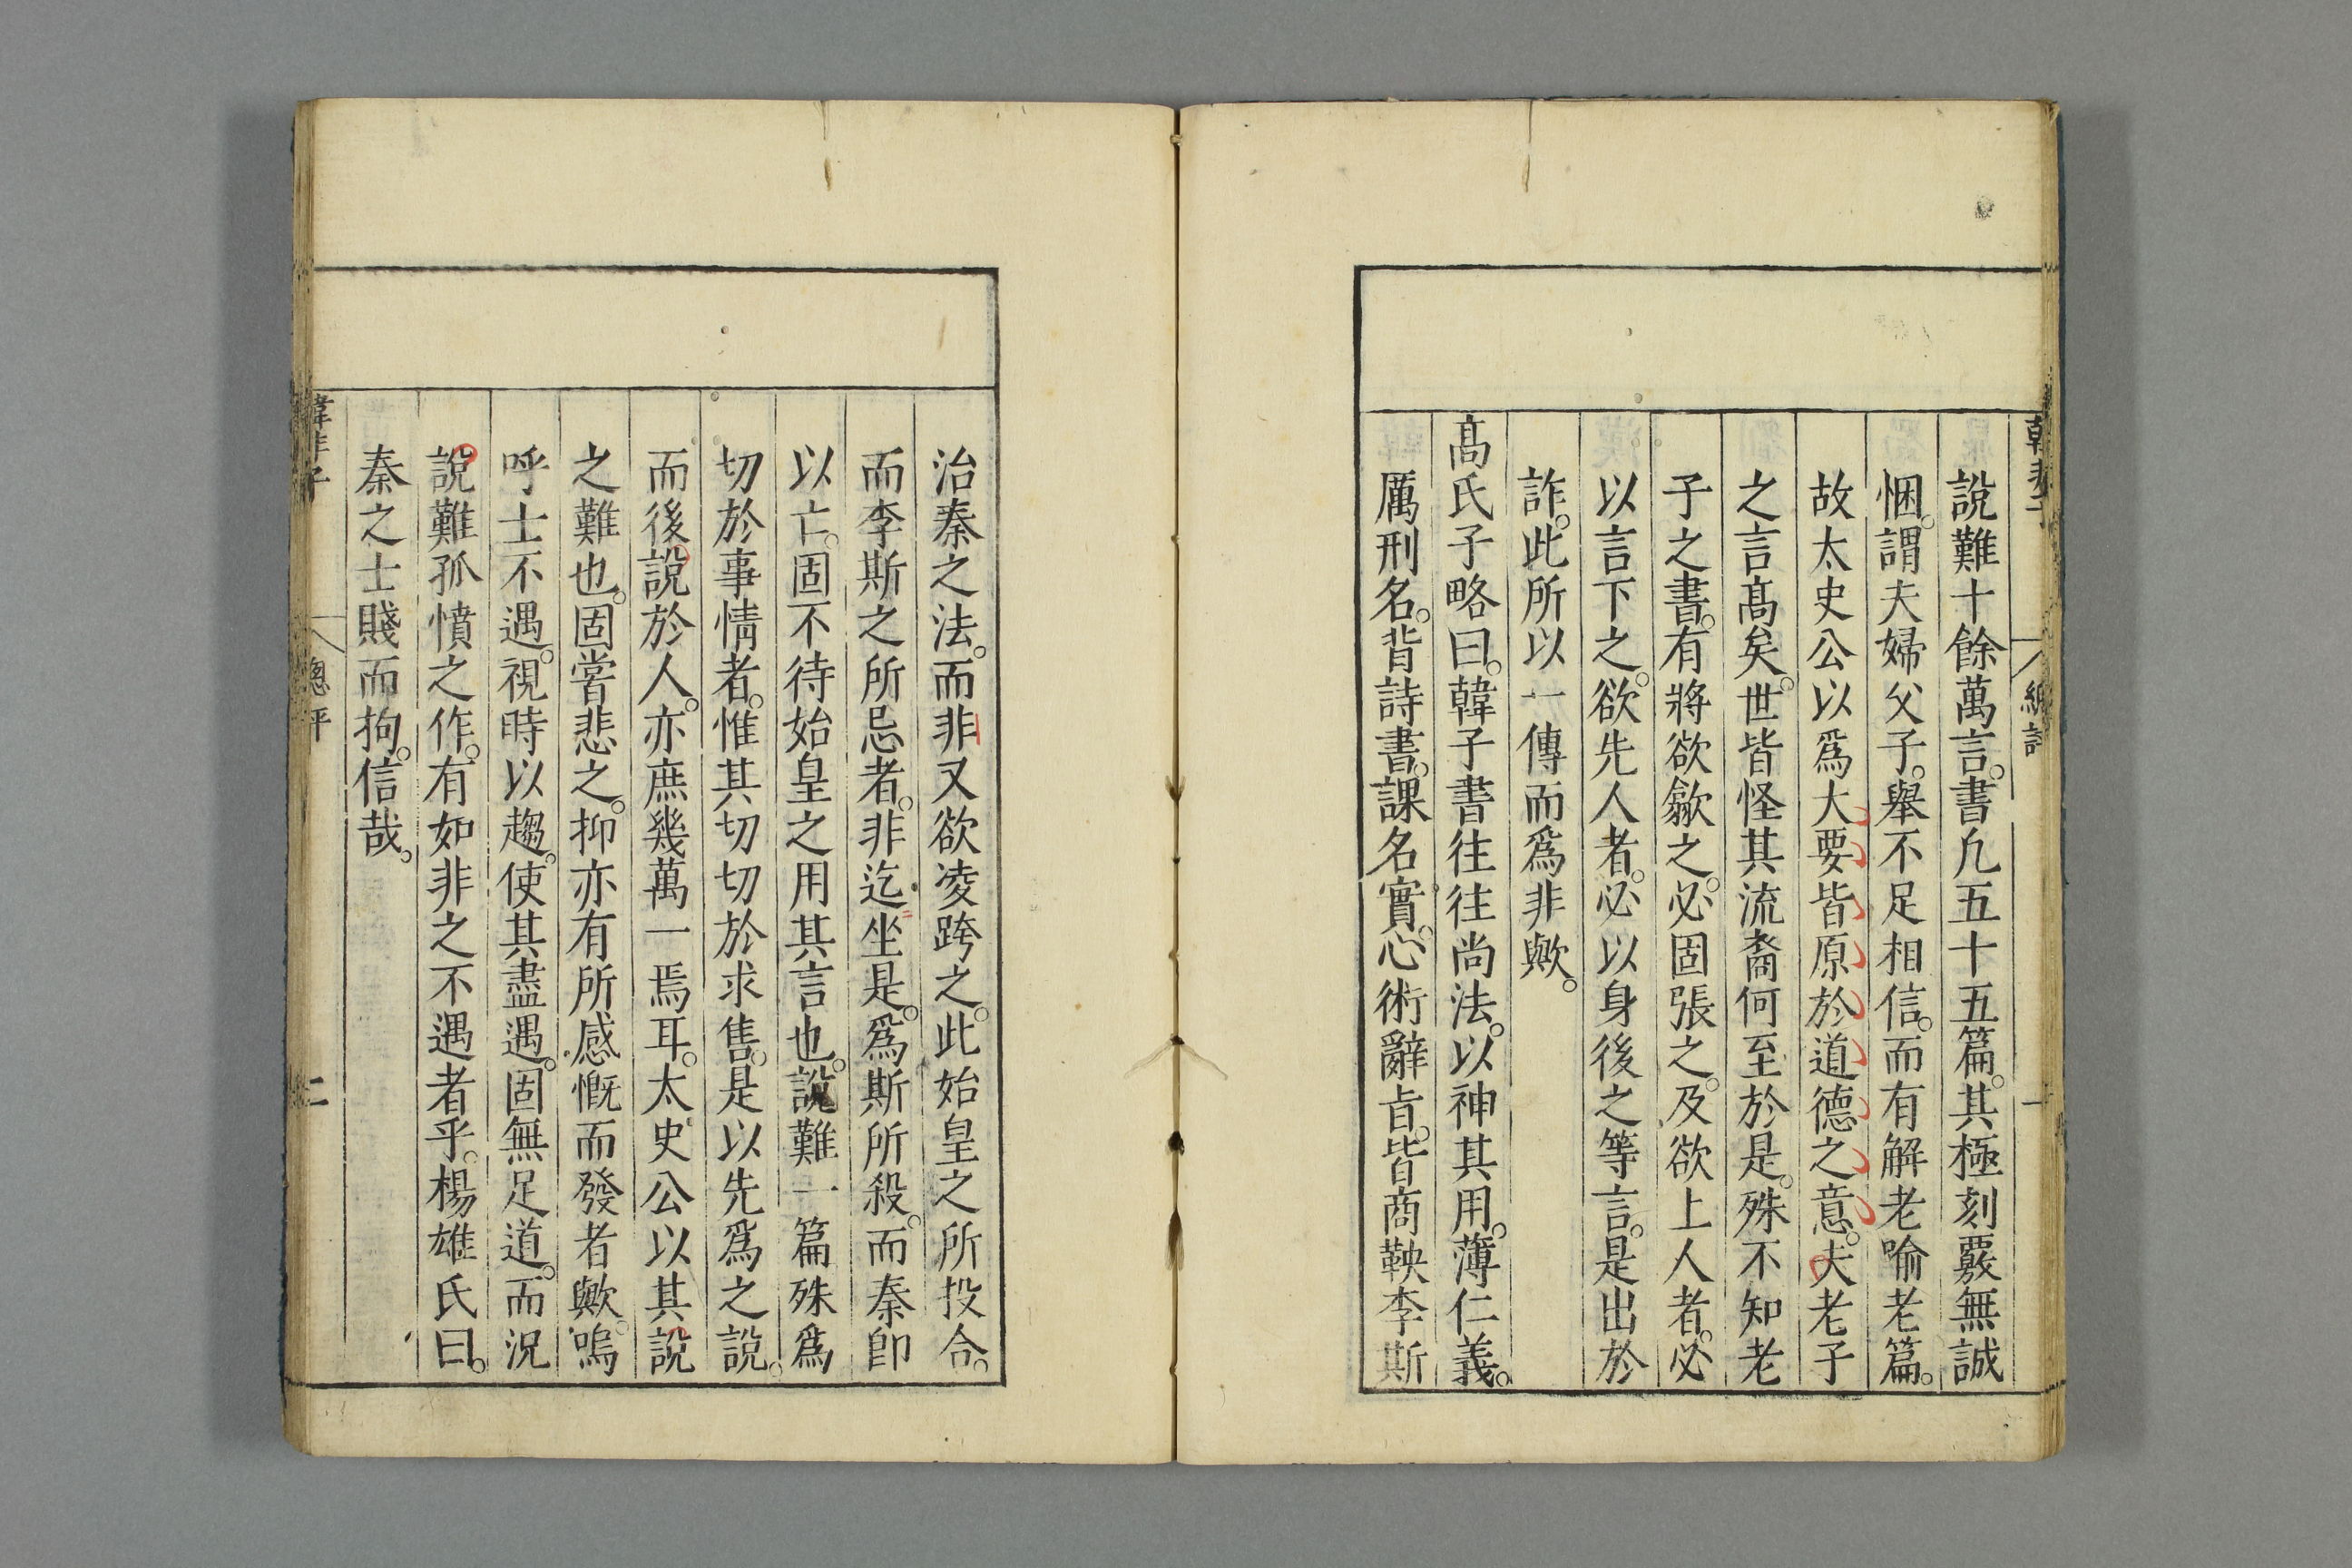 說難十餘萬言。書凢五十五篇。其極刻覈無誠
悃。謂夫婦父子。舉不足相信。而有解老喻老篇。
故太史公以爲大要皆原於道德之意。夫老子
之言髙矣。世皆怪其流裔何至於是。殊不知老
子之書。有將欲歙之。必固張之。及欲上人者。必
以言下之。欲先人者。必以身後之等言。是出於
詐。此所以一傳而爲非歟。
髙氏子略曰。韓子書往往尚法。以神其用。薄仁義。
厲刑名。背詩書。課名實。心術辭旨。皆商鞅李斯
治秦之法。而非又欲凌跨之。此始皇之所投合。
而李斯之所忌者。非迄坐是。爲斯所殺。而秦卽
以亡。固不待始皇之用其言也。說難一篇殊爲
切於事情者。惟其切切於求售。是以先爲之說。
而後說於人。亦庶幾萬一焉耳。太史公以其說
之難也。固嘗悲之。抑亦有所感慨而發者歟。嗚
呼士不遇。視時以趨。使其盡遇。固無足道。而況
說難孤憤之作。有如非之不遇者乎。楊雄氏曰。
秦之士賤而拘。信哉。
韓非子
總評
二